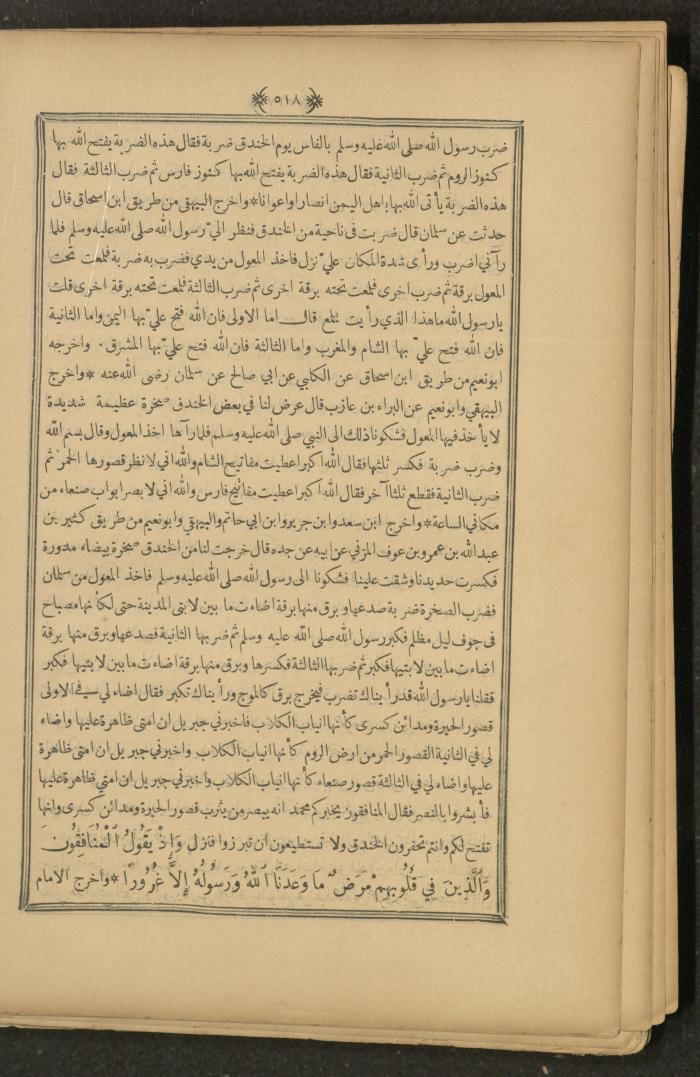 ٥١٨
ضرب رسول الله صلى الله عليه وسلم بالفاس يوم الخندق ضربة فقال هذه الضربة يفتح الله بها
كنوز الروم ثم ضرب الثانية فقال هذه الضربة يفتح الله بها كنوز فارس ثم ضرب الثالثة فقال
هذه الضربة يأتى الله بها باهل اليمن انصارا واعوانا * واخرج البيهقى من طريق ابن اسحاق قال
حدثت عن سلمان قال ضربت فى ناحية من الخندق فنظر اليّ رسول الله صلى الله عليه وسلم فلما
رآني اضرب ورأى شدة المكان عليّ نزل فاخذ المعول من يدي فضرب به ضربة فلمعت تحت
المعول برقة ثم ضرب اخرى فلمعت تحته برقة اخرى ثم ضرب الثالثة فلمعت تحته برقة اخرى قلت
يارسول الله ماهذا الذي رأيت يلمع قال اما الاولى فان الله فتح عليّ بها اليمن واما الثانية
فان الله فتح عليّ بها الشام والمغرب واما الثالثة فان الله فتح عليّ بها المشرق . واخرجه
ابونعيم من طريق ابن اسحاق عن الكلبي عن ابي صالح عن سلمان رضى الله عنه * واخرج
البيهقي وابونعيم عن البراء بن عازب قال عرض لنا في بعض الخندق صخرة عظيمة شديدة
لا يأخذ فيها المعول فشكونا ذلك الى النبي صلى الله عليه وسلم فلما رآها اخذ المعول وقال بسم الله
وضرب ضربة فكسر ثلثها فقال الله اكبر اعطيت مفاتيح الشام والله اني لانظر قصورها الحمر ثم
ضرب الثانية فقطع ثلثا آخر فقال الله اكبر اعطيت مفاتيح فارس والله اني لابصر ابواب صنعاء من
مكاني الساعة * واخرج ابن سعد وابن جرير وابن ابي حاتم والبيهقي وابونعيم من طريق كثير بن
عبدالله بن عمرو بن عوف المزني عن ابيه عن جده قال خرجت لنا من الخندق صخرة بيضاء مدورة
فكسرت حديدنا وشقت علينا فشكونا الى رسول الله صلى الله عليه وسلم فاخذ المعول من سلمان
فضرب الصخرة ضربة صدعها وبرق منها برقة اضاءت ما بين لابتى المدينة حتى لكأنها مصباح
فى جوف ليل مظلم فكبر رسول الله صلى الله عليه وسلم ثم ضربها الثانية فصدعها وبرق منها برقة
اضاءت ما بين لابتيها فكبر ثم ضربها الثالثة فكسرها وبرق منها برقة اضاءت ما بين لابتيها فكبر
فقلنا يارسول الله قد رأيناك تضرب فيخرج برق كالموج ورأيناك تكبر فقال اضاء لي في الاولى
قصور الحيرة ومدائن كسرى كأنها انياب الكلاب فاخبرني جبريل ان امتى ظاهرة عليها واضاء
لي في الثانية القصور الحمر من ارض الروم كأنها انياب الكلاب واخبرني جبريل ان امتى ظاهرة
عليها واضاء لي في الثالثة قصور صنعاء كأنها انياب الكلاب واخبرني جبريل ان امتي ظاهرة عليها
فأبشروا بالنصر فقال المنافقون يخبركم محمد انه يبصر من يثرب قصور الحيرة ومدائن كسرى وانها
تفتح لكم وانتم تحفرون الخندق ولا تستطيعون ان تبرزوا فنزل وَاِذْ يَقُولُ ٱلْمُنَافِقُونَ
وَٱلَّذِينَ فِي قُلُوبِهِمْ مَرَضٌ مَا وَعَدَنَا ٱللهُ وَرَسُولُهُ إِلاَّ غُرُورًا * واخرج الامام